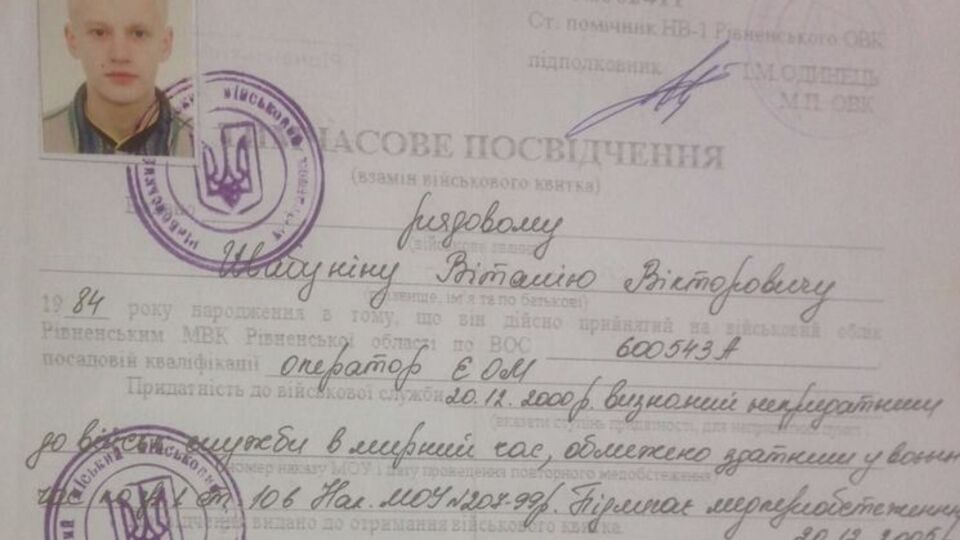 Ст. помічник НВ-1 Рівненського ОВК
підполковник І.М.ОДИНЕЦЬ
М.П. ОВК
ТИМЧАСОВЕ ПОСВІДЧЕННЯ
(взамін військового квитка)
рядовому
(військове звання)
Шабуніну Віталію Вікторовичу
(прізвище, ім'я та по батькові)
19 84 року народження в тому, що він дійсно прийнятий на військовий облік
Рівненським МВК Рівненської області по ВОС 600543А
посадовій кваліфікації оператор ЄОМ
Придатність до військової служби 20.12.2000р. визнаний непридатним
(вказати ступінь придатності, для
до військ. служби в мирний час, обмежено здатним у воєн
номер наказу МОУ і дату проведення повторного медобстеження)
час по ст. 10б Нак. МОУ №207-99р. Підлягає медперобстеженню
видано до отримання військового квитка.
20.12.2005р.